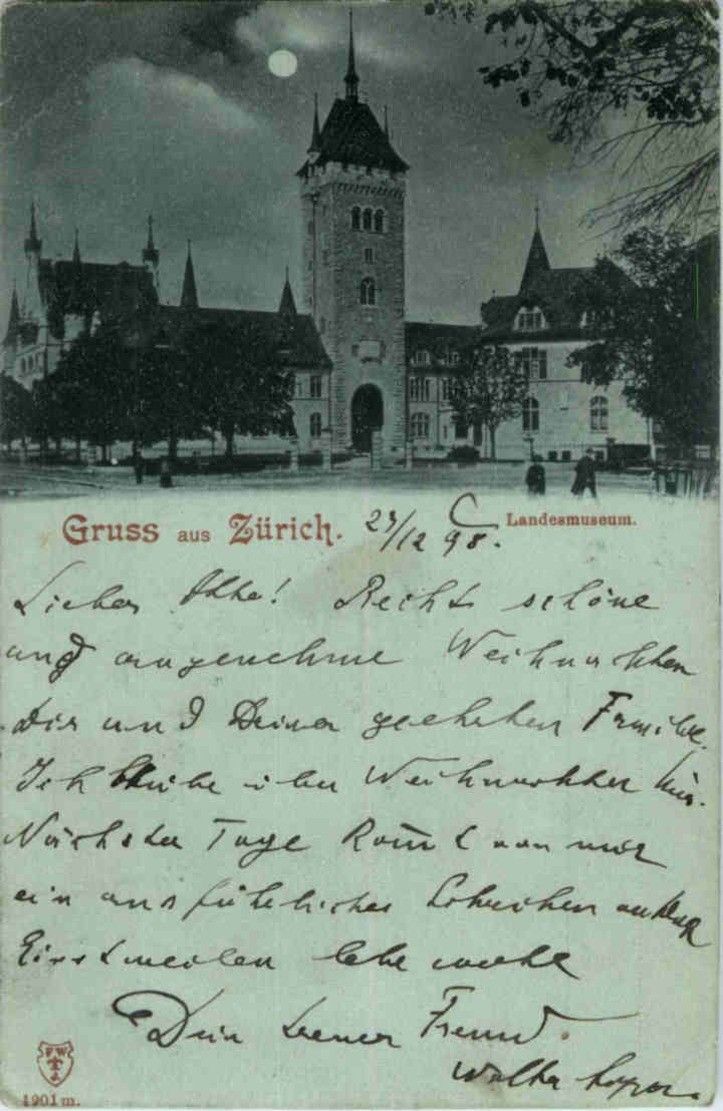 Gruss aus Zürich. 23/12 98.
Landesmuseum.
Lieber Otto! Recht schöne
und angenehme Weihnachten
Dir und Deiner geehrten Familie.
Ich bleibe über Weihnachten hier.
Nächster Tage kommt von mir
ein ausführliches Schreiben
Einstweilen lebe wohl
Dein treuer Freund.
Walther
1901 m.